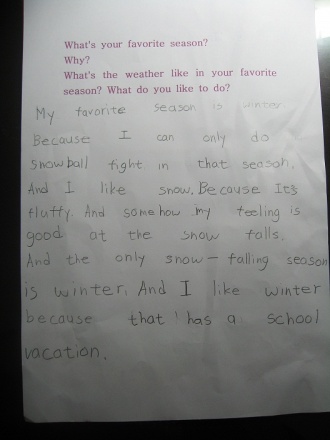 What's your favorite season?
Why?
What's the weather like in your favorite
season? What do you like to do?
My favorite season is winter
Because I can only do
snowball fight in that season.
And I like snow. Because It's
fluffy. And somehow my feeling is
good at the snow falls.
And the only snow-falling season
is winter. And I like winter
because that has a school
vacation.